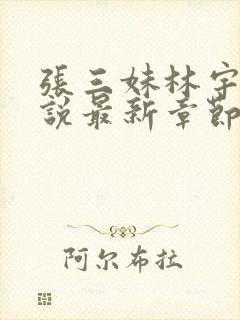 張三妹林宇
說最新章節
阿尔布拉